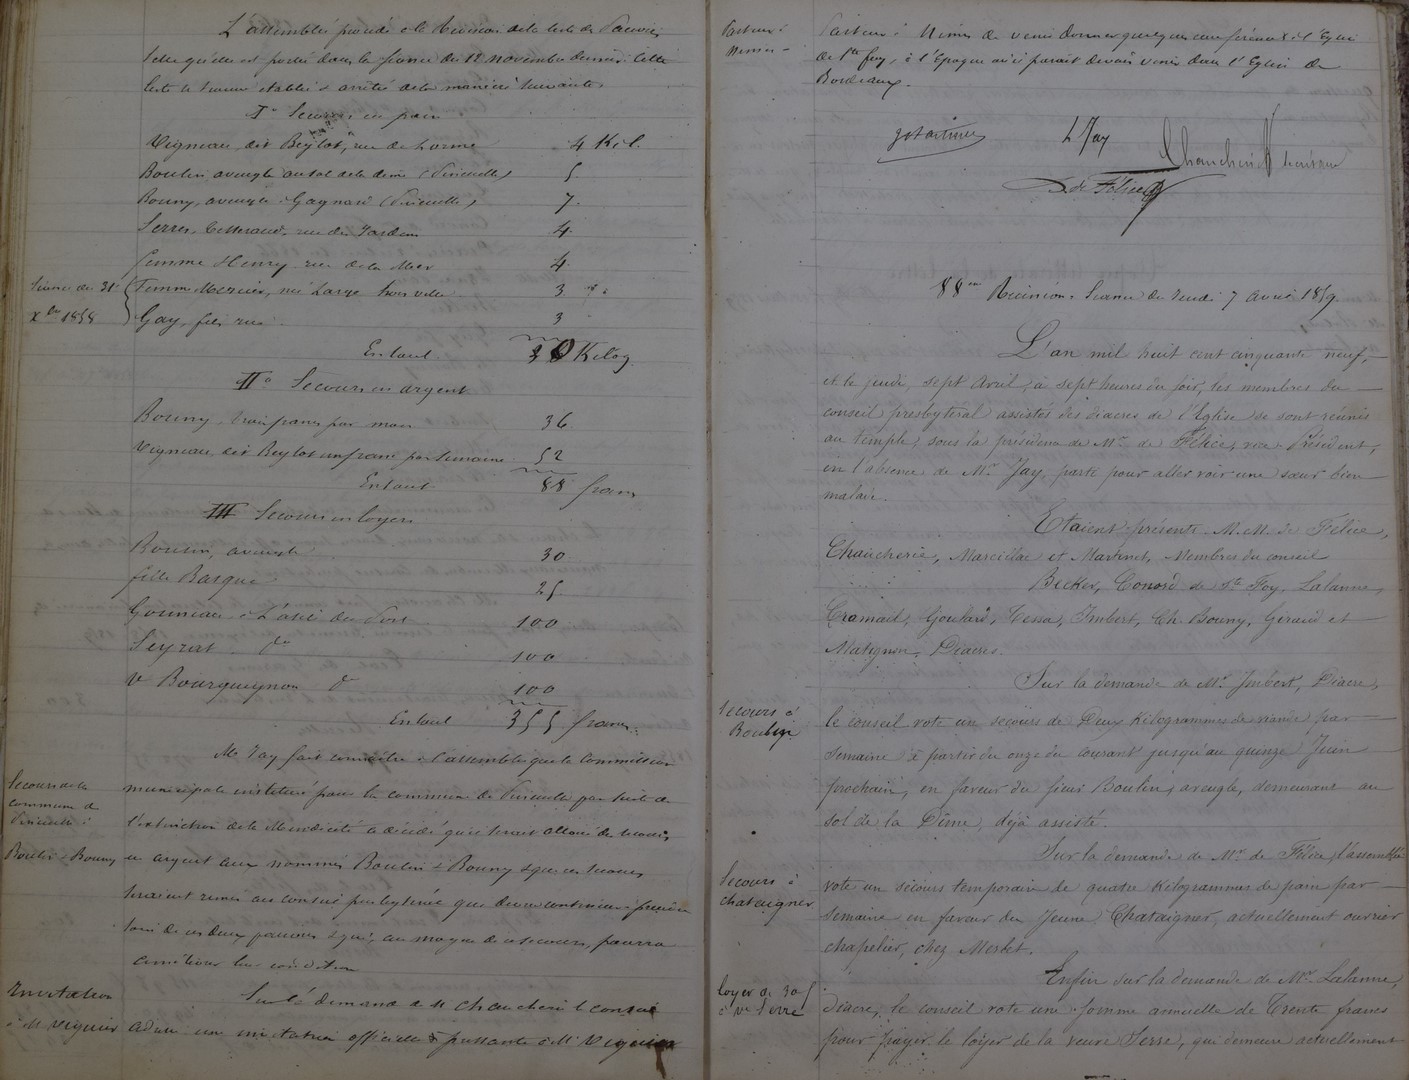 L'assemblée procède à la Revision de la liste des Pauvres,
telle qu'elle est portée dans la séance du 12 novembre dernier. Cette
liste se trouve établie & arrêtée de la manière suivante.
I° Secours en pain
Vigneau dit Beylot, rue de Lorme 4 Kil.
Boulin aveugle au sol de la dime (Pineuilh) 5.
Bouny, aveugle à Gagnard (Pineuilh) 7.
Serres, Tisserand, rue des Jardins 4.
Femme Henry rue de la Mer 4.
Séance du 31
Xbre 1858
Femme Mercier, née Large hors ville 3
Gay, fils rue 3
En tout 30 Kilog
II° Secours en argent
Bouny, trois francs par mois 36
Vigneau, dit Beylot un franc par Semaine 52
En tout 88 francs
III Secours en loyers
Boulin, aveugle 30
fille Barque 25
Gouneau à l'asile du Port 100
Seyrat do 100
Ve Bourgueynon do 100
En tout 355 francs
Mr Jay fait connaître à l'assemblée que la Commission
Secours de la
commune de
Pineuilh à
Boulin & Bouny
municipale instituée pour la commune de Pineuilh par suite de
l'extinction de la Mendicité a décidé qu'il serait alloué des secours
en argent aux nommés Boulin & Bouny & que ces secours
seraient remis au conseil presbytéral que devra continuer à prendre
soin de ces deux pauvres & qui, au moyen de ce secours, pourra
améliorer leur condition
Invitation
à M Viguier
Sur la demande de M Chaucherie le conseil
adresse une invitation officielle & pressante à Mr Viguier
Pasteur à
Nimes –
Pasteur à Nimes de venir donner quelques conférences à l'Eglise
de Ste foy, à l'Epoque où il parait devoir venir dans l'Eglise de
Bordeaux.
L Jay
Chaucherie secrétaire
de Félice
88me Réunion. Séance du Jeudi 7 avril 1859.
L'an mil huit cent cinquante neuf,
et le jeudi, sept Avril, à sept heures du soir, les membres du
conseil presbytéral assistés des diacres de l'Eglise se sont réunis
au temple, sous la présidence de Mr de Félice, vice-Président,
en l'absence de Mr Jay, parti pour aller voir une sœur bien
malade.
Etaient présents M.M. de Félice,
Chaucherie, Marcillac et Martinet, Membres du conseil
Becker, Conord de Ste Foy, Lalanne,
Cramail, Goulard, Tessa, Imbert, Ch. Bouny, Géraud et
Matignon, Diacres.
Sur la demande de Mr Imbert, Diacre,
Secours à
Boulin
le conseil vote un secours de Deux Kilogrammes de viande par
Semaine à partir du onze du courant jusqu'au quinze Juin
prochain, en faveur du sieur Boulin, aveugle, demeurant au
sol de la Dîme, déjà assisté.
Sur la demande de Mr de Félice, l'assemblée
Secours à
chataigner
vote un secours temporaire de quatre Kilogrammes de pain par
Semaine en faveur du Jeune Chataigner, actuellement ouvrier
chapelier, chez Meslet.
Enfin sur la demande de Mr Lalanne,
loyer de 30 f
à ve Serre
Diacre, le conseil vote une somme annuelle de Trente francs
pour payer le loyer de la veuve Serre, qui demeure actuellement